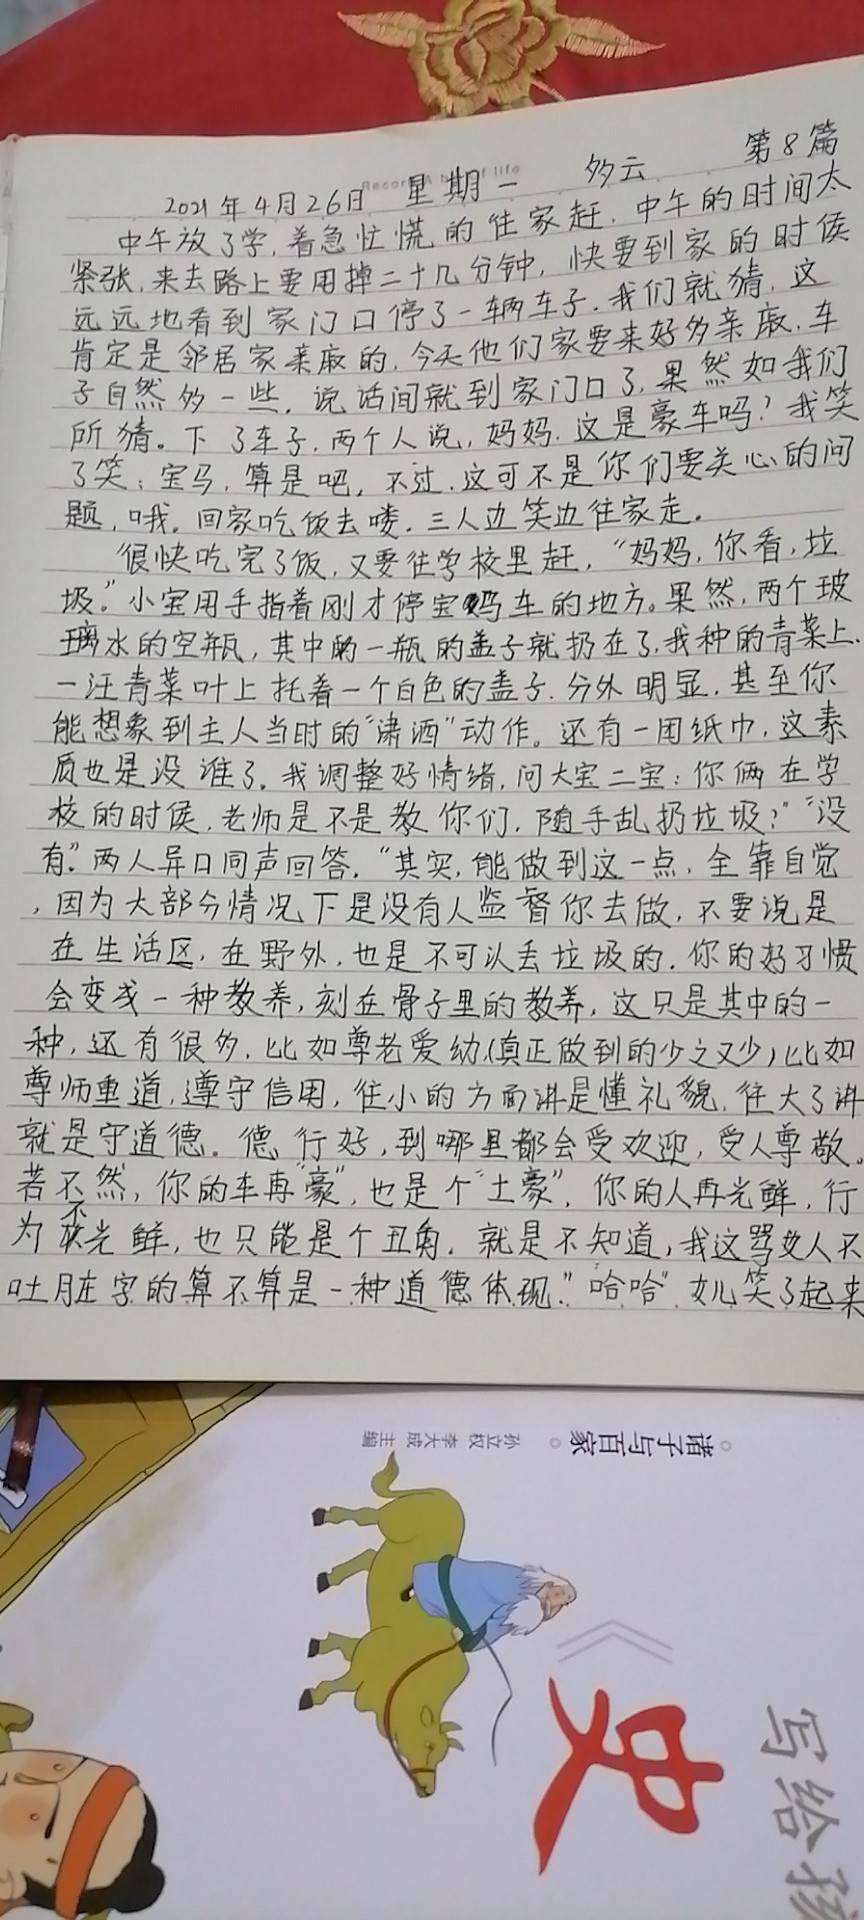 2021年4月26日 星期一 多云 第8篇
中午放了学,着急忙慌的往家赶.中午的时间太
紧张,来去路上要用掉二十几分钟,快要到家的时侯
远远地看到家门口停了一辆车子.我们就猜,这
肯定是邻居家亲戚的,今天他们家要来好多亲戚.车
子自然多一些.说话间就到家门口了,果然如我们
所猜。下了车子.两个人说,妈妈.这是豪车吗?我笑
了笑:宝马,算是吧,不过.这可不是你们要关心的问
题,哦.回家吃饭去喽.三人边笑边往家走.
很快吃完了饭,又要往学校里赶,“妈妈,你看,垃
圾.”小宝用手指着刚才停宝马车的地方。果然,两个玻
璃水的空瓶,其中的一瓶的盖子就扔在了,我种的青菜上.
一汪青菜叶上托着一个白色的盖子.分外明显,甚至你
能想象到主人当时的“潇洒”动作。还有一团纸巾,这素
质也是没谁了.我调整好情绪,问大宝二宝:你俩在学
校的时侯,老师是不是教你们,随手乱扔垃圾?”“没
有.”两人异口同声回答.“其实,能做到这一点,全靠自觉
,因为大部分情况下是没有人监督你去做,不要说是
在生活区,在野外,也是不可以丢垃圾的.你的好习惯
会变成一种教养,刻在骨子里的教养,这只是其中的一
种,还有很多,比如尊老爱幼(真正做到的少之又少)比如
尊师重道,遵守信用,往小的方面讲是懂礼貌,往大了讲
就是守道德。德行好,到哪里都会受欢迎,受人尊敬。
若不然,你的车再“豪”,也是个“土豪”,你的人再光鲜,行
为不光鲜,也只能是个丑角.就是不知道,我这骂人不
吐脏字的算不算是一种道德体现.”哈哈”女儿笑了起来
诸子与百家 孙立权 李大成 主编
《史
写给孩